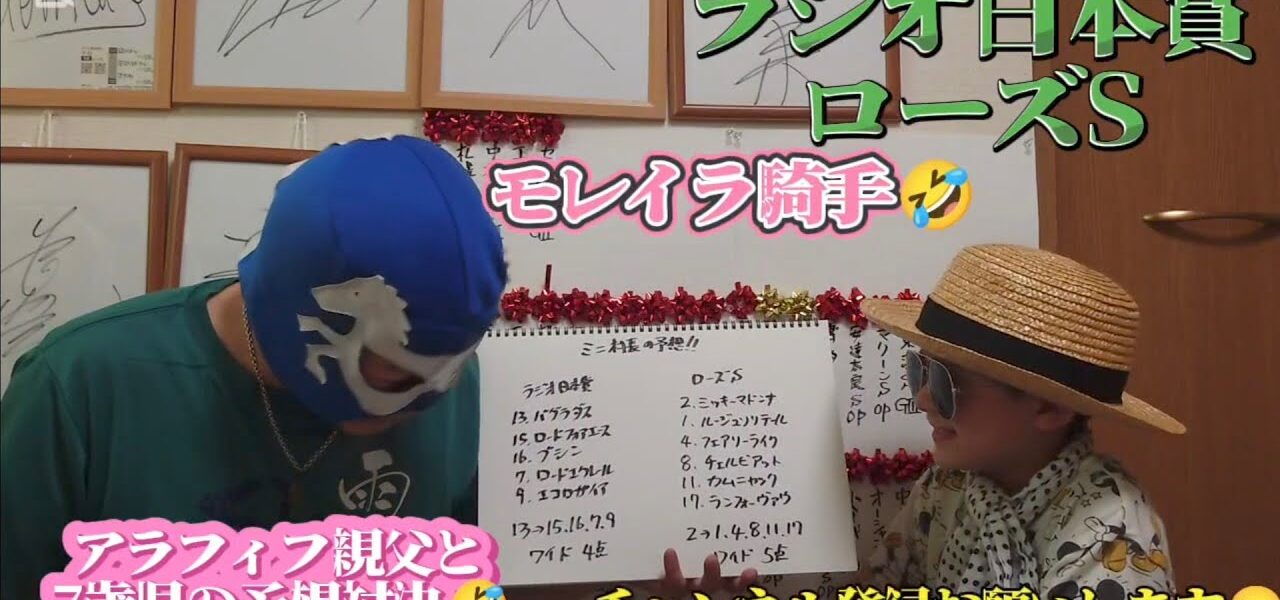 ラジオ日本賞
ローズS
モレイラ騎手🤣
ミニ村長の予想!!
ラジオ日本賞
13. バグラダス
15. ロードフォアエース
16. ブシン
7. ロードエクレール
9. エコロガイア
13→15.16.7.9
ワイド 4点
ローズS
2. ミッキーマドンナ
1. ルージュソリテール
4. フェアリーライク
8. チェルビアット
11. カムニャック
17. ランフォーヴァウ
2→1.4.8.11.17
ワイド 5点
雨
アラフィフ親父と
7歳児の予想対決🤣
チャンネル登録お願いします